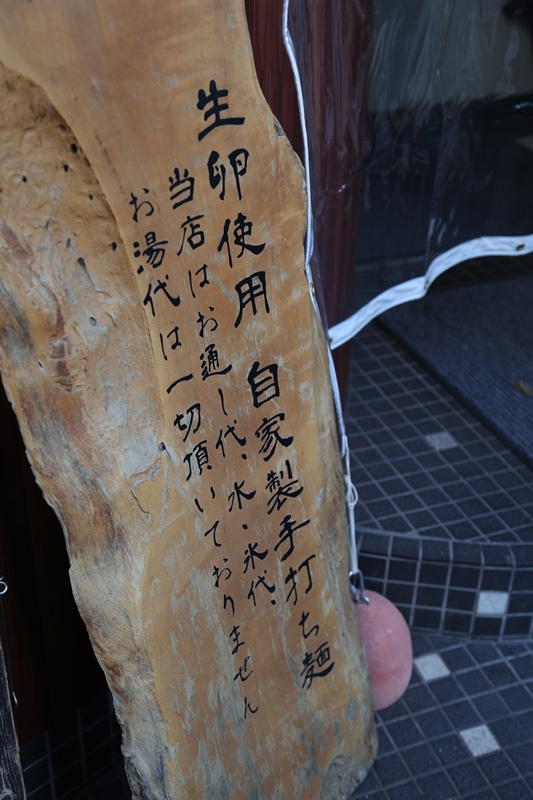 生卵使用 自家製手打ち麺
当店はお通し代、水・氷代、
お湯代は一切頂いておりません